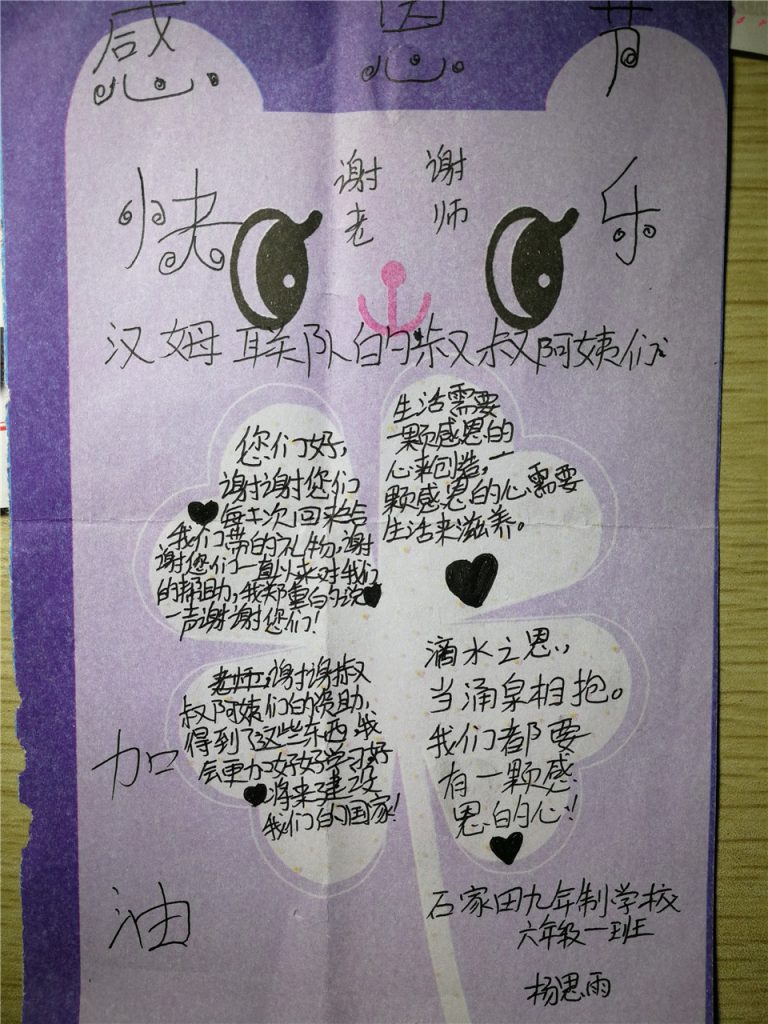 感恩节
快乐
谢谢
老师
汉姆联队的叔叔阿姨们
您们好,
谢谢您们
每次回来给
我们带的礼物,谢
谢您们一直以来对我们
的帮助,我郑重的说
一声谢谢您们!
生活需要
一颗感恩的
心来创造,一
颗感恩的心需要
生活来滋养。
谢谢叔
叔阿姨们的资助,
得到了这些东西,我
会更加好好学习,好
将来建设
我们的国家!
滴水之恩,
当涌泉相抱。
我们都要
有一颗感
恩的心!
加
油
石家田九年制学校
六年级一班
杨思雨